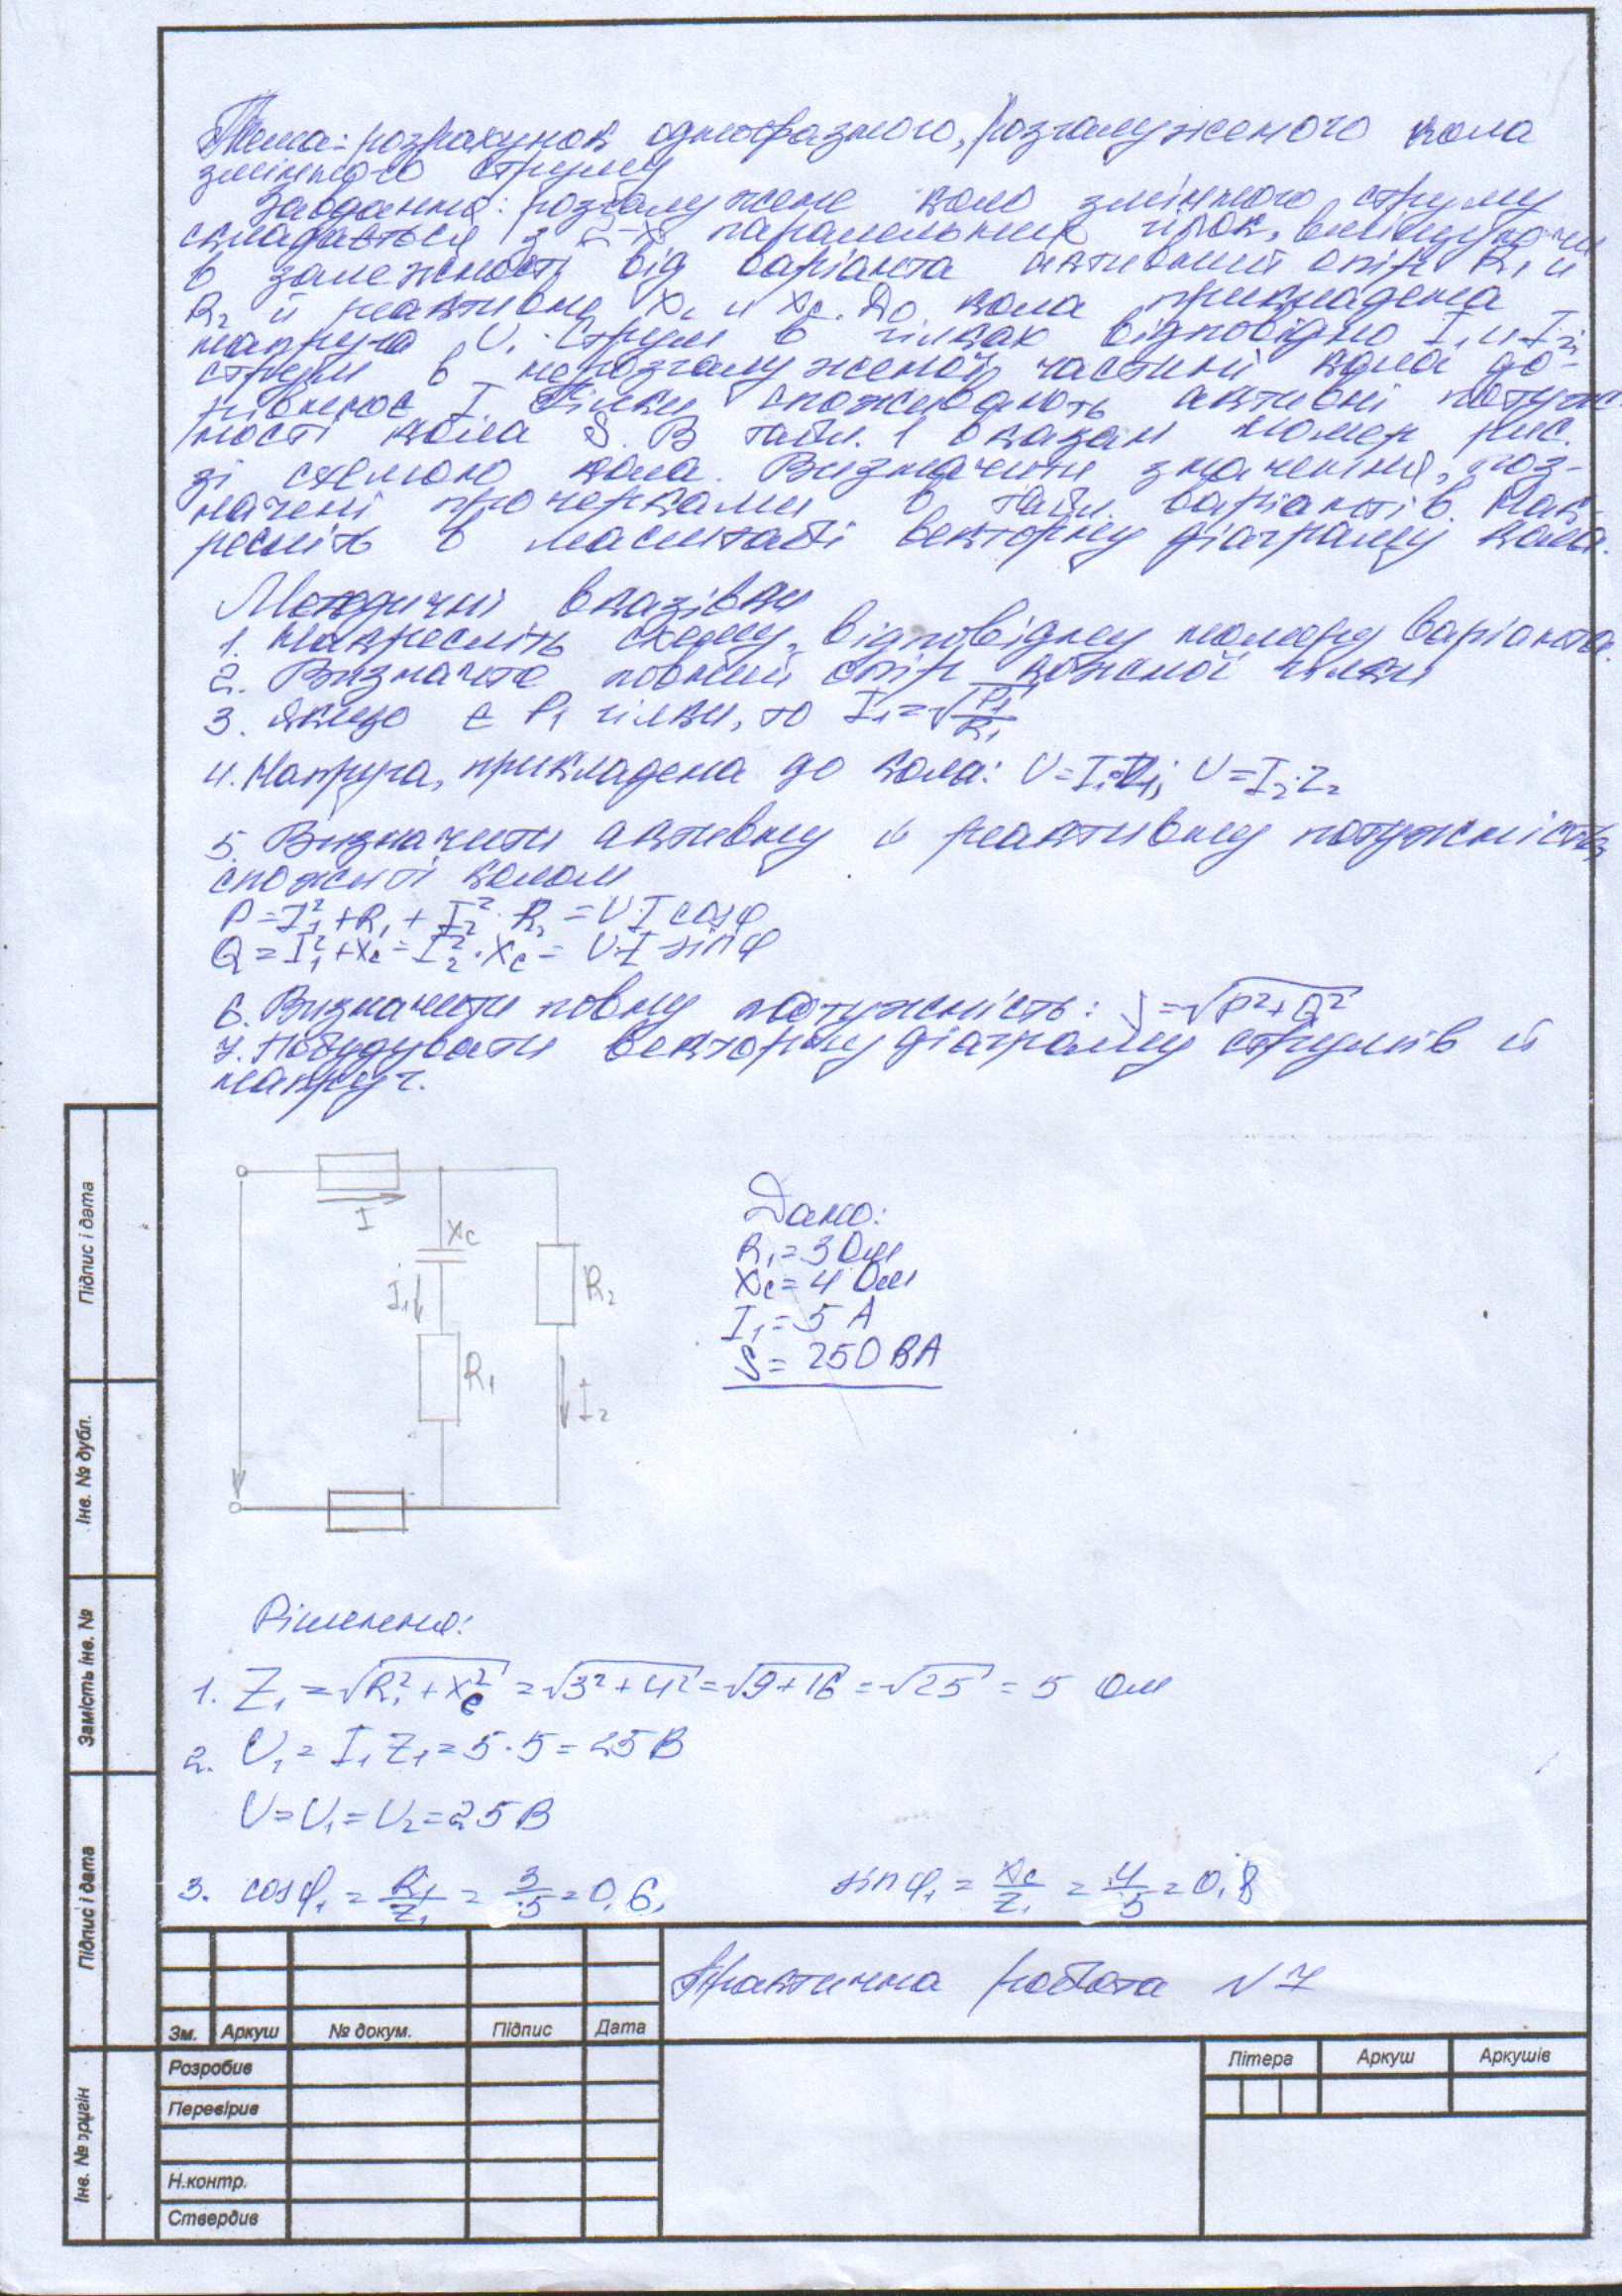 Тема: розрахунок однофазного, розгалуженого кола
змінного струму
Завдання: розгалужене коло змінного струму
складається з 2-х паралельних гілок,
в залежності від варіанта активний опір R₁ и
R₂ й реактивну X_L и X_C. До кола прикладена
напруга U. Струм в гілках відповідно I₁ и I₂,
струм в нерозгалуженої частині кола до-
рівнює I. Гілки споживають активні потуж
ності кола S. В табл. 1 вказан номер рис.
зі схемою кола. Визначити значення, поз-
начені прочерками в табл. варіантів. Нак-
ресліть в масштабі векторну діаграму кола.
Методичні вказівки
1. Накресліть схему, відповідну номеру варіанта.
2. Визначте повний опір кожної гілки
3. Якщо є P₁ гілки, то I₁=√(P₁/R₁)
4. Напруга, прикладена до кола: U=I₁Z₁; U=I₂·Z₂
5. Визначити активну й реактивну потужність,
спожиті колом
P=I₁²+R₁+I₂²·R₂=U·I cosφ
Q=I₁²+X_C=I₂²·X_C=U·I sinφ
6. Визначити повну потужність: S=√(P²+Q²)
7. Побудувати векторну діаграму струмів й
напруг.
I
X_C
I₁
R₂
R₁
I₂
Дано:
R₁=3 Ом
X_C=4 Ом
I₁=5 А
S=250 ВА
Рішення:
1. Z₁=√(R₁²+X_C²)=√(3²+4²)=√(9+16)=√25=5 Ом
2. U₁=I₁Z₁=5·5=25 В
U=U₁=U₂=25 В
3. cosφ₁=R₁/Z₁=3/5=0,6, sinφ₁=X_C/Z₁=4/5=0,8
Практична робота N7
Зм. Аркуш № докум. Підпис Дата
Розробив
Перевірив
Н.контр.
Ствердив
Літера Аркуш Аркушів
Підпис і дата
Інв. № дубл.
Замість інв. №
Підпис і дата
Інв. № оригін